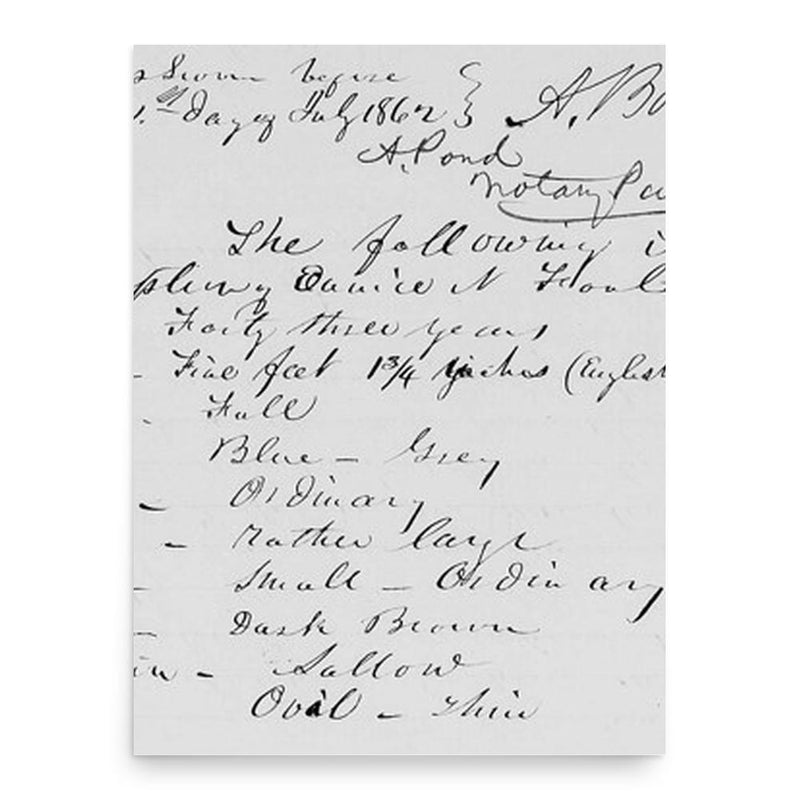 Sworn before
1st Day of July 1862 } A. Bo
A. Pond
Notary Pu
The following i
Eunice N
Forty three years
- Five feet 1 3/4 inches (English
- Full
Blue - Grey
- Ordinary
- rather large
- Small - Ordinary
- Dark Brown
in - Sallow
Oval - thin